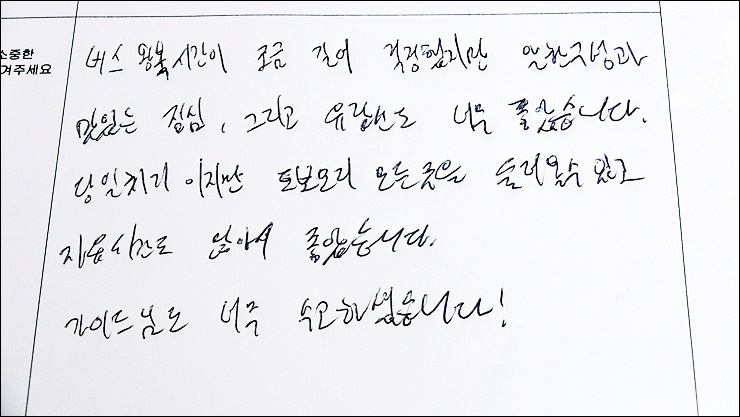 소중한
겨주세요
버스 왕복 시간이 조금 길어 걱정했지만 알찬구성과
맛있는 점심, 그리고 유람선도 너무 좋았습니다.
당일치기 이지만 토모노우라 모든곳을 둘러볼수 있고
자유시간도 많아서 좋았습니다.
가이드님도 너무 수고하셨습니다!